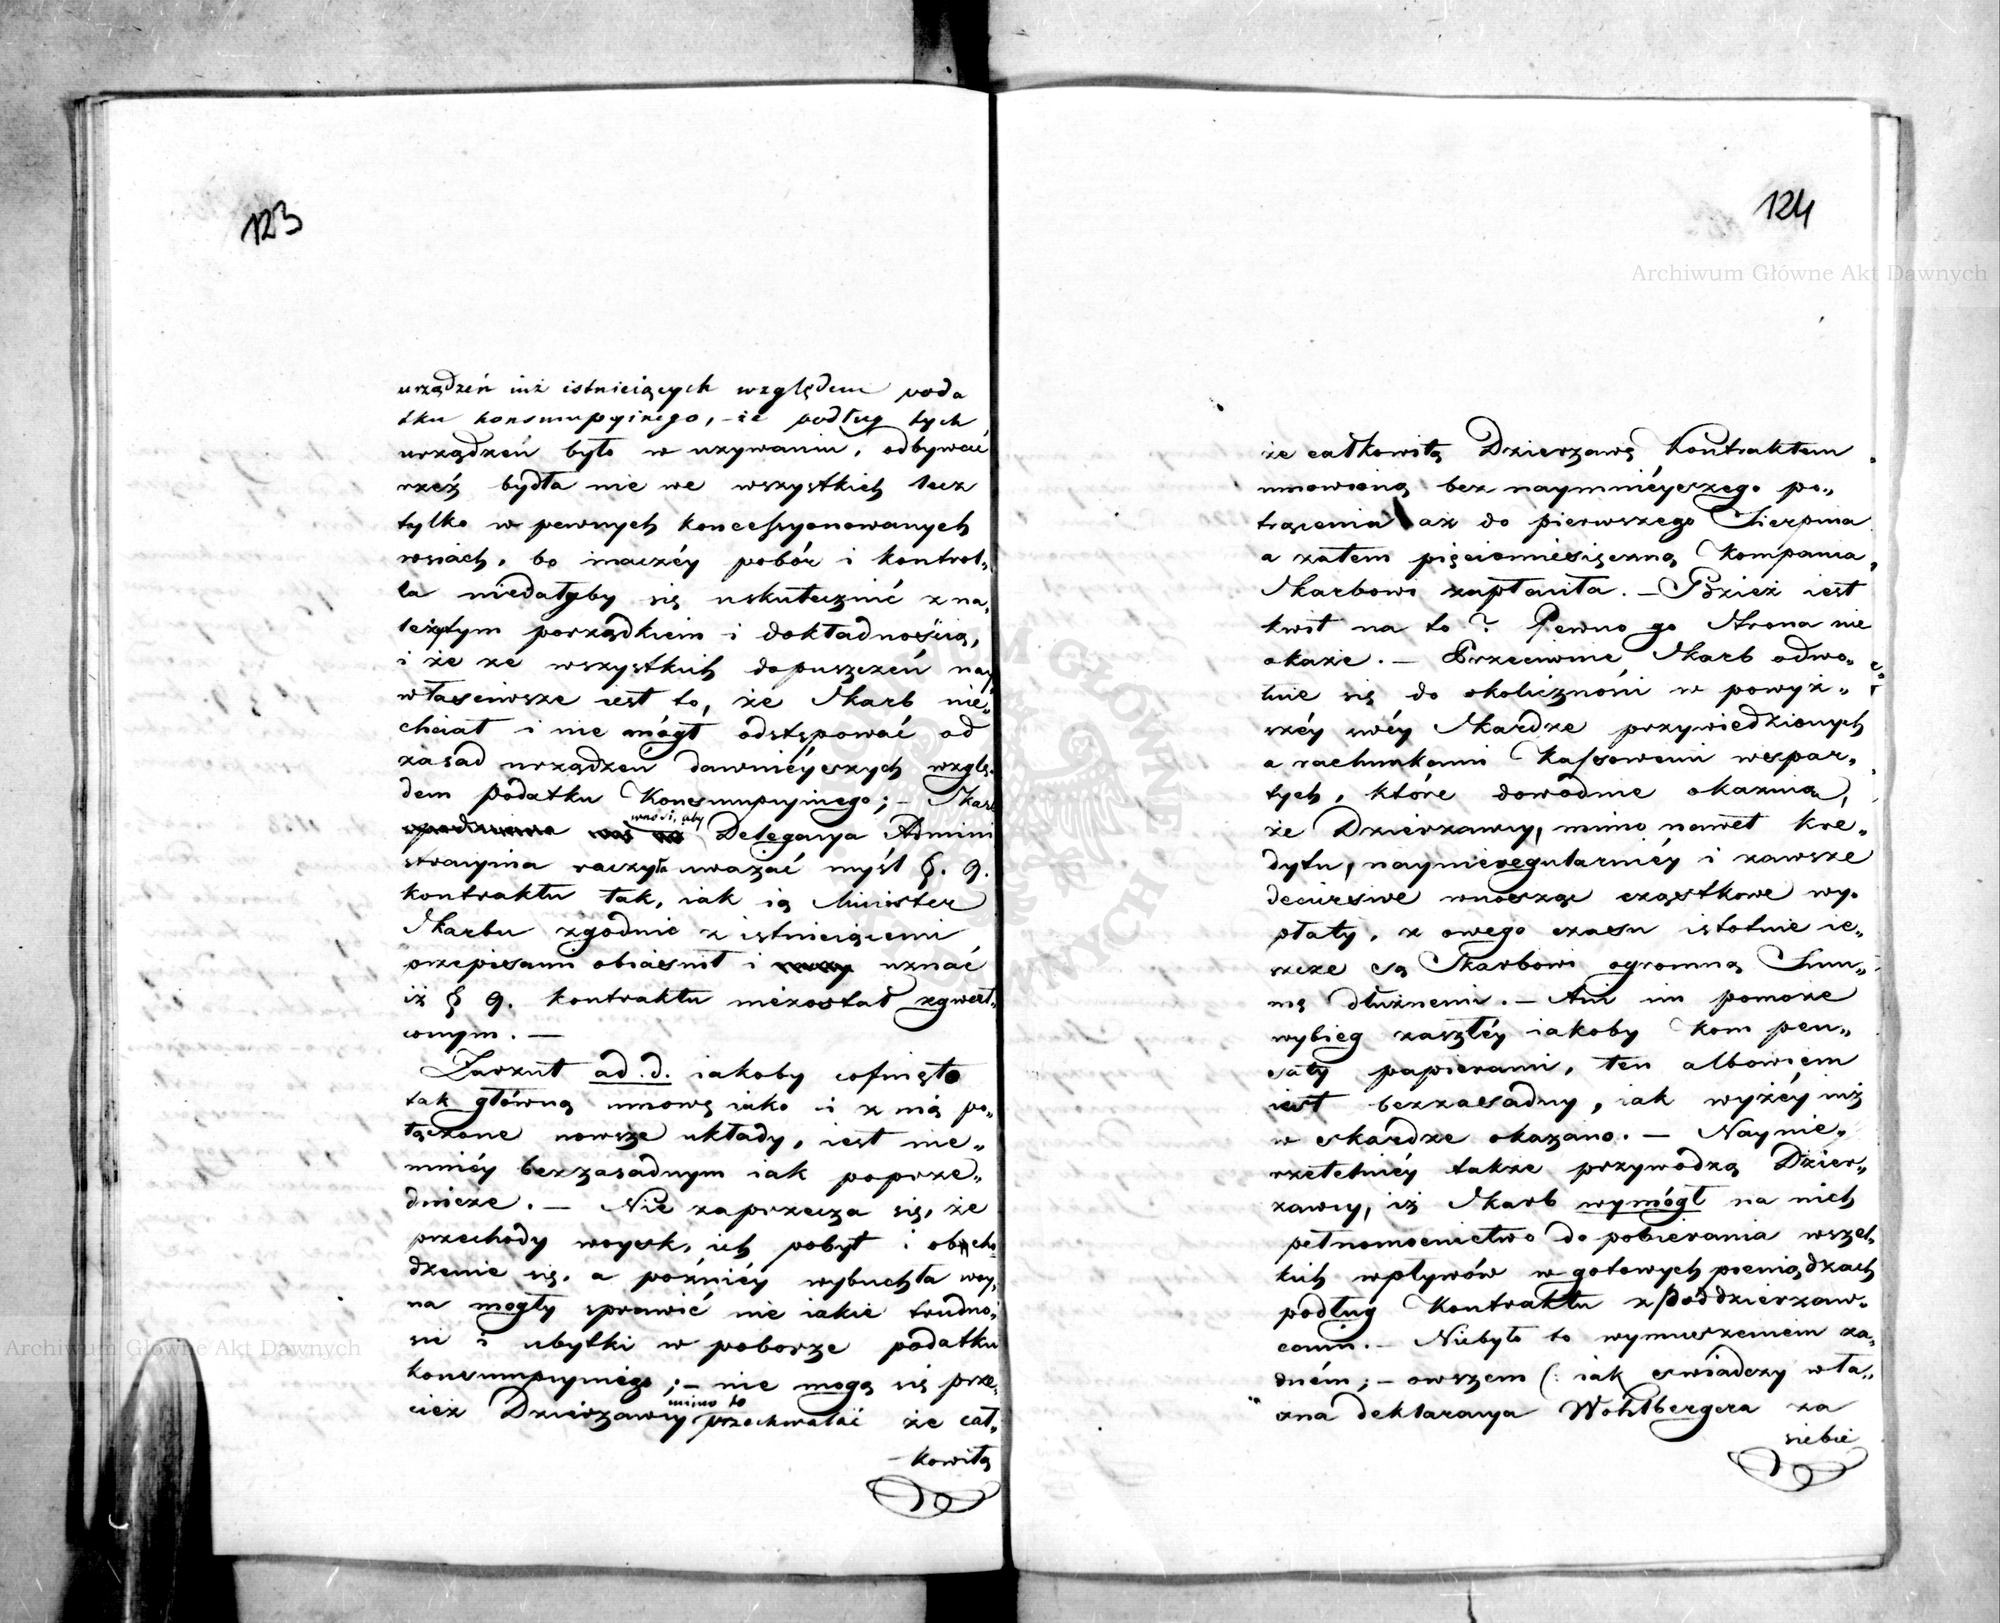 123
urządzeń iuż istnieiących względem poda
tku konsumpcyinego, – że podług tych
urządzeń było w używaniu, odbywać
rzéź bydła nie we wszystkich lecz
tylko w pewnych koncessyonowanych
wsiach, bo inaczéy pobór i kontrol„
la niedałyby się uskutecznić z na„
leżytym porządkiem i dokładnością,
i że ze wszystkich dopuszczeń nay
właściwsze iest to, że Skarb nie„
chciał i nie mógł odstępować od
zasad urządzeń dawniéyszych wzglę„
dem podatku Konsumpcyinego; – Skarb
wnosi, aby
Delegacya Admini
stracyina raczyła uważać myśl §. 9.
kontraktu tak, iak ią Minister
Skarbu zgodnie z istnieiącemi
przepisami obiaśnił i uznać
iż § 9. kontraktu niezostał zgwał„
conym. —
Zarzut ad. d. iakoby cofnięto
tak główną umowę iako i z nią po„
łączone nowsze układy, iest nie„
mniéy bezzasadnym iak poprze„
dnicze. — Nie zaprzecza się, że
przechody woysk, ich pobyt i obcho
dzenie się, a poźniéy wybuchła woy„
na mogły sprawić nie iakie trudno„
ści i ubytki w poborze podatku
konsumpcyinego; – nie mogą się prze„
mimo to
cież Dzierżawcy przechwalać że cał„
kowitą
124
Archiwum Główne Akt Dawnych
że całkowitą Dzierżawę Kontraktem
umowioną bez naymnieyszego po„
trącenia aż do pierwszego Sierpnia
a zatem pięciomiesięczną Kompania
Skarbowi zapłaciła. – Gdzież iest
kwit na to? Pewno go Strona nie
okaże. – Przeciwnie Skarb odwo„
łuie się do okoliczności w powyż„
széy swéy Skardze przywiedzionych
a rachunkami Kassowemi wspar„
tych, które dowodnie okazuią,
że Dzierżawcy, mimo nawet kre„
dytu, naynieregularniéy i zawsze
decursive wnosząc cząstkowe wy„
płaty, z owego czasu istotnie ie„
szcze są Skarbowi ogromną Sum„
mę dłużnemi. – Ani im pomoże
wybieg zaszłéy iakoby kompen„
saty papierami, ten albowiem
iest bezzasadny, iak wyżéy iuż
w skardze okazano. – Naynie„
rzetelniéy także przywodzą Dzier„
żawcy, iż Skarb wymógł na nich
pełnomocnictwo do pobierania wszel„
kich wpływów w gotowych pieniądzach
podług Kontraktu z Poddzierżaw„
cami. – Niebyło to wymuszeniem ża„
dném; – owszem (: iak świadczy wła„
sna deklaracya Wohlbergera za
siebie
Archiwum Główne Akt Dawnych